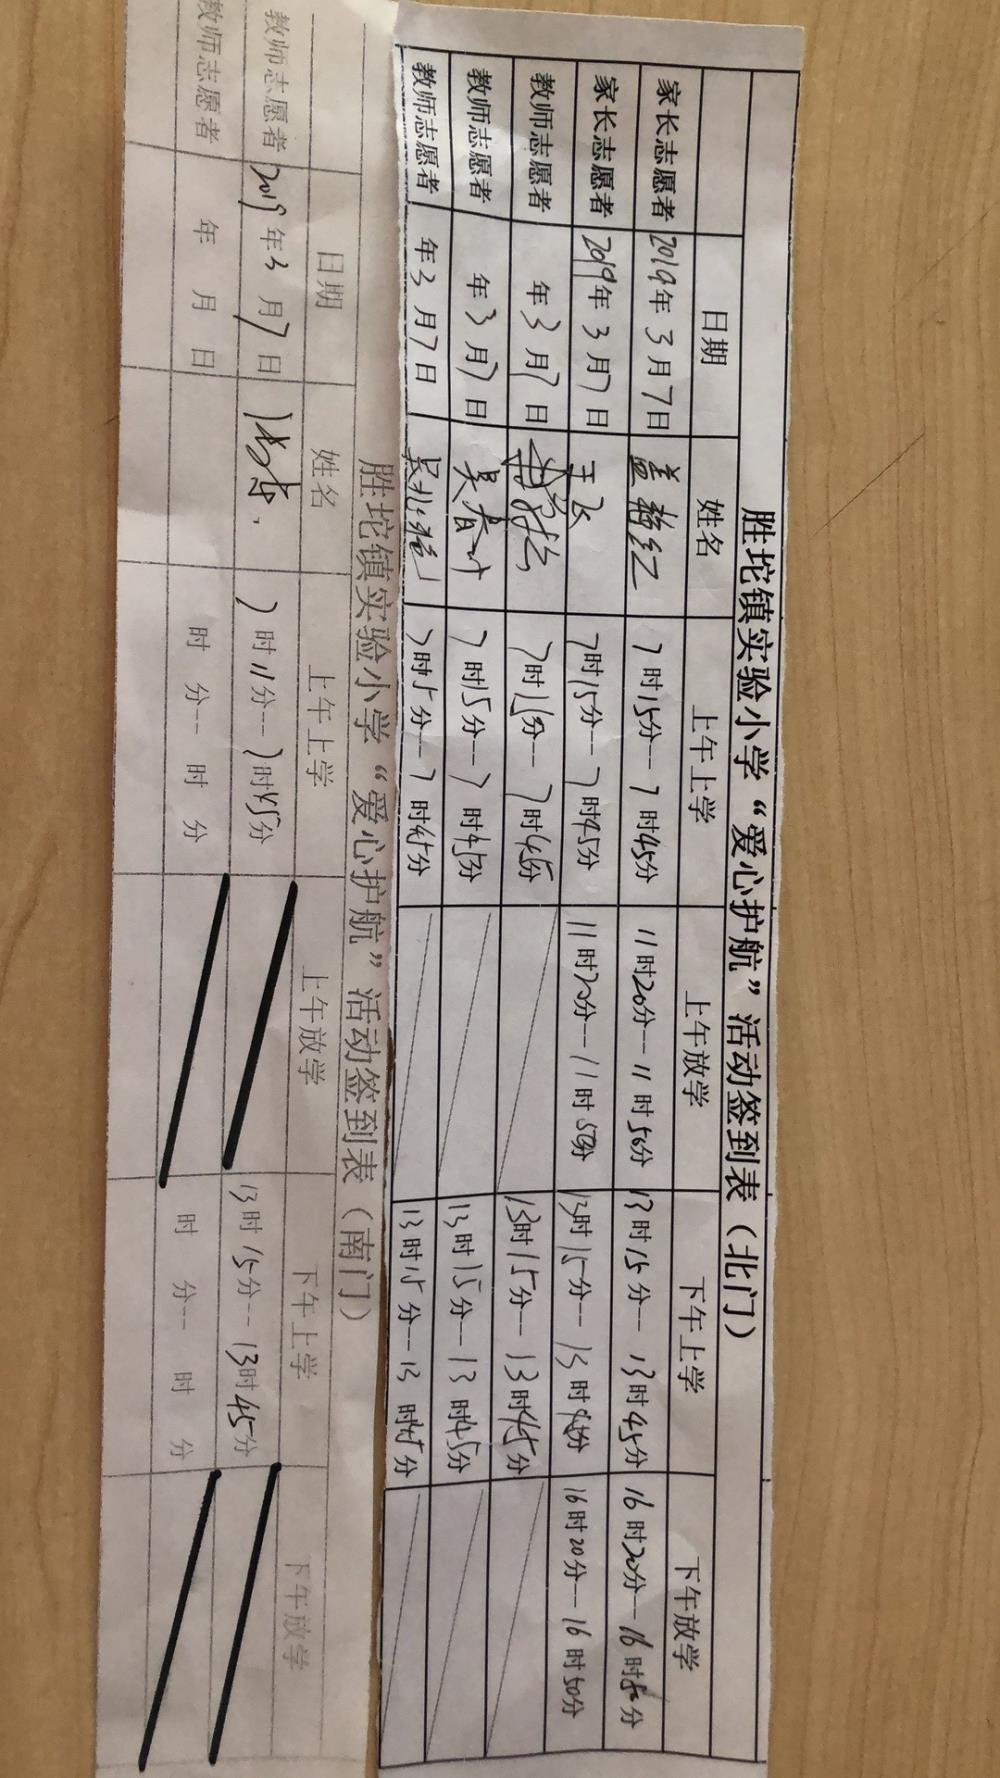 胜坨镇实验小学“爱心护航”活动签到表（北门）
日期 姓名 上午上学 上午放学 下午上学 下午放学
家长志愿者 2019年3月7日 盖艳红 7时15分--7时45分 11时20分--11时50分 13时15分--13时45分 16时20分--16时50分
家长志愿者 2019年3月7日 王飞 7时15分--7时45分 11时20分--11时50分 13时15分--13时45分 16时20分--16时50分
教师志愿者 年3月7日 7时15分--7时45分 13时15分--13时45分
教师志愿者 年3月7日 吴春叶 7时15分--7时45分 13时15分--13时45分
教师志愿者 年3月7日 7时15分--7时45分 13时15分--13时45分
胜坨镇实验小学“爱心护航”活动签到表（南门）
日期 姓名 上午上学 上午放学 下午上学 下午放学
教师志愿者 2019年3月7日 7时11分--7时45分 13时15分--13时45分
教师志愿者 年 月 日 时 分--时 分 时 分--时 分